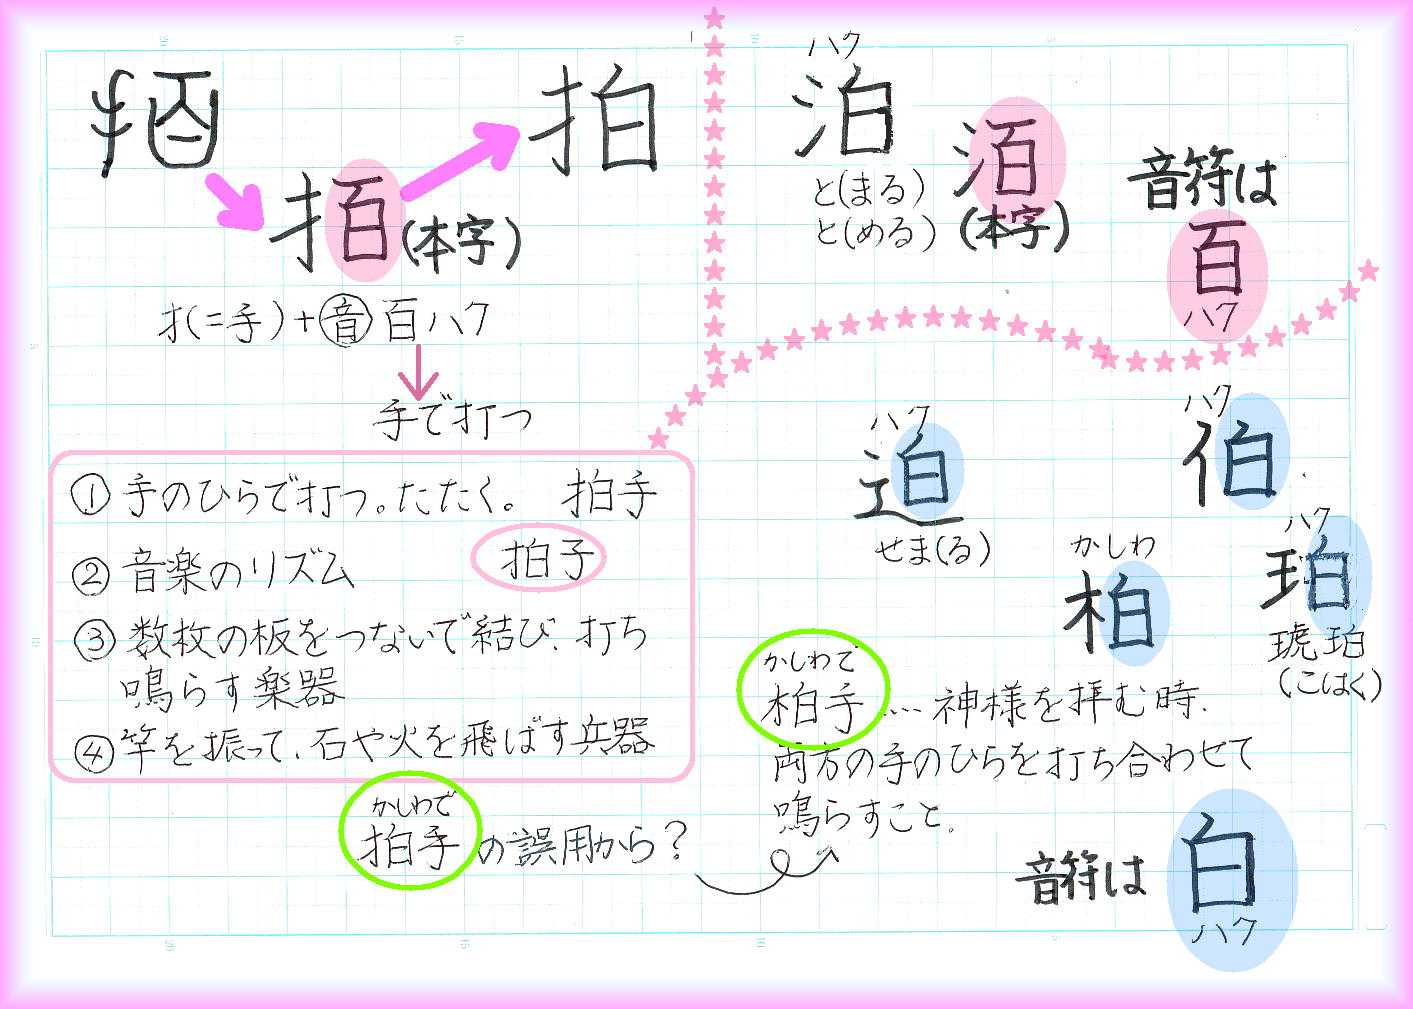 拍
拍
(本字)
扌(=手)+音 百ハク
手で打つ
①手のひらで打つ。たたく。 拍手
②音楽のリズム 拍子
③数枚の板をつないで結び、打ち
鳴らす楽器
④竿を振って、石や火を飛ばす兵器
かしわで
拍手の誤用から?
ハク
泊
と(まる)
と(める)
洦
(本字)
音符は
百
ハク
ハク
迫
せま(る)
ハク
伯
かしわ
柏
ハク
珀
琥珀
(こはく)
かしわで
柏手…神様を拝む時、
両方の手のひらを打ち合わせて
鳴らすこと。
音符は
白
ハク